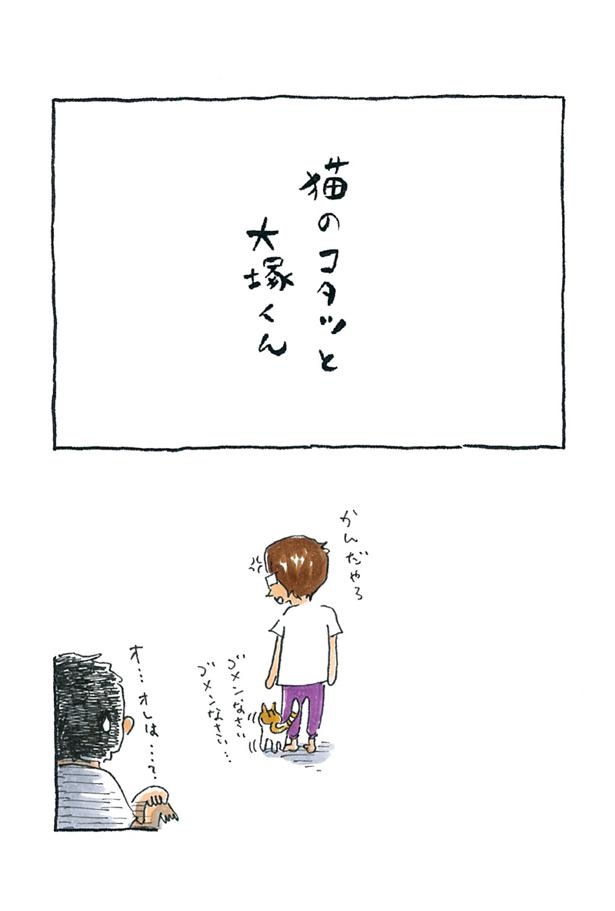 猫のコタツと
大塚くん
かんだやろ
ゴメンなさい
ゴメンなさい…
オ…オレは……?